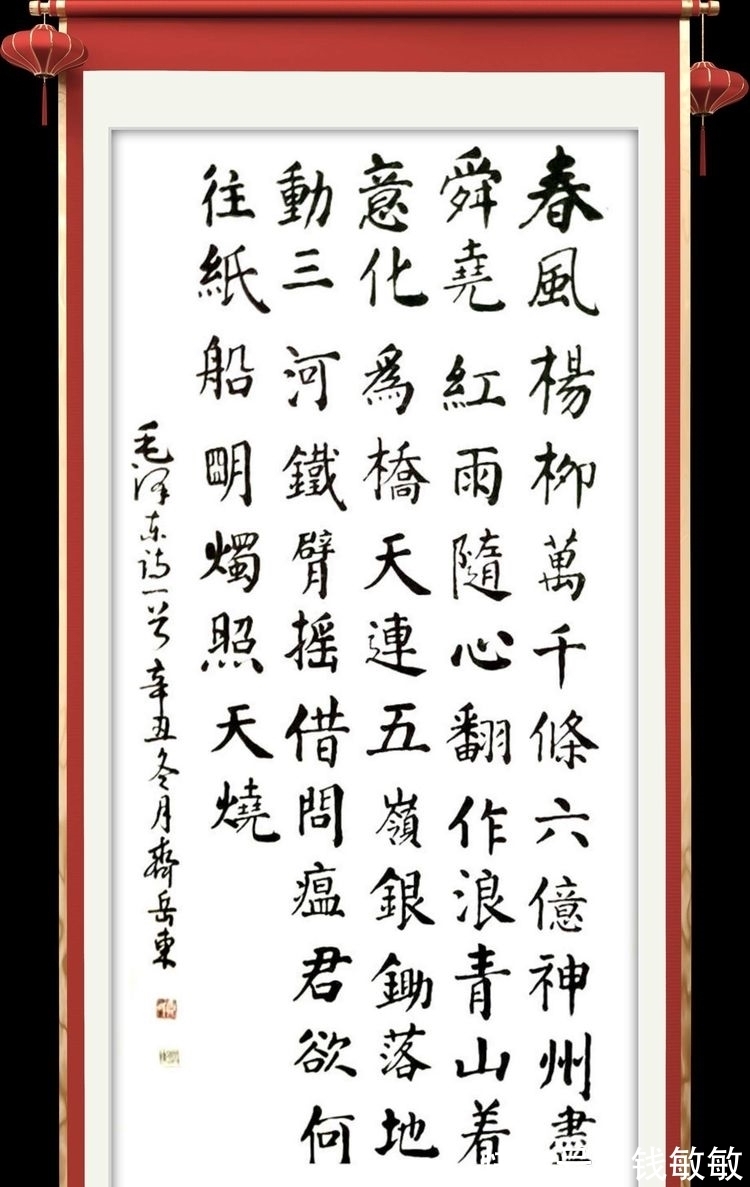 春風楊柳萬千條六億神州盡
舜堯紅雨隨心翻作浪青山着
意化爲橋天連五嶺銀鋤落地
動三河鐵臂摇借問瘟君欲何
往紙船明燭照天燒
毛泽东诗一首辛丑冬月齊岳東
钱敏敏